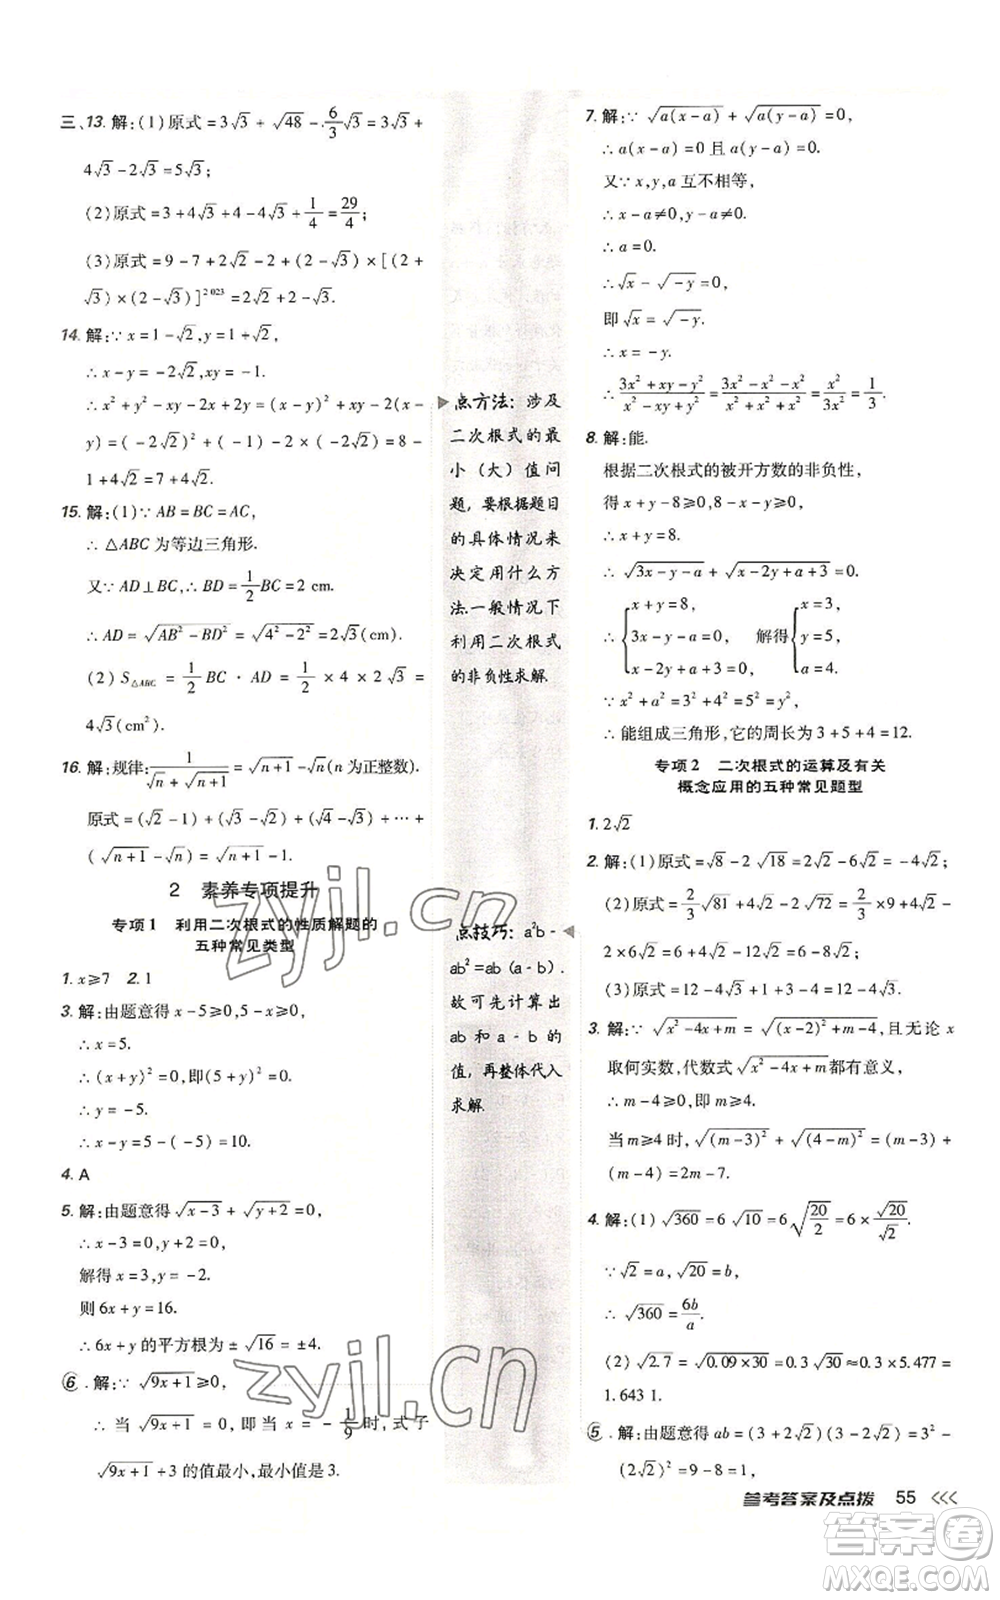 三、13. 解:(1)原式=3√3+√48-6/3√3=3√3+
4√3-2√3=5√3;
(2)原式=3+4√3+4-4√3+1/4=29/4;
(3)原式=9-7+2√2-2×[(2+
√3)×(2-√3)]^2 023=2√2-2=2√2.
14. 解:∵x=1-√2,y=1+√2,
∴x-y=-2√2,xy=-1.
∴x²+y²-xy-2x+2y=(x-y)²+xy-2(x-
y)=(-2√2)²-1-2×(-2√2)=8-
1+4√2=7+4√2.
15. 解:(1)∵AB=BC=AC,
∴△ABC为等边三角形.
又∵AD⊥BC,∴BD=1/2BC=2 cm.
∴AD=√(AB²-BD²)=√(4²-2²)=2√3(cm).
(2)S△ABC=1/2BC·AD=1/2×4×2√3=
4√3(cm²).
16. 解:规律:1/(√n+√(n+1))=√(n+1)-√n(n为正整数).
原式=(√2-1)+(√3-√2)+(√4-√3)+…+
(√(n+1)-√n)=√(n+1)-1.
2 素养专项提升
专项1 利用二次根式的性质解题的
五种常见类型
1. x≥7 2. 1
3. 解:由题意得x-5≥0,5-x≥0,
∴x=5.
∴(x+y)²=0,即(5+y)²=0.
∴y=-5.
∴x-y=5-(-5)=10.
4. A
5. 解:由题意得√(x-3)+√(y+2)=0,
∴x-3=0,y+2=0,
解得x=3,y=-2.
则6x+y=16.
∴6x+y的平方根为±√16=±4.
6. 解:∵√(9x+1)≥0,
∴当√(9x+1)=0,即当x=-1/9时,式子
√(9x+1)+3的值最小,最小值为3.
点方法:涉及
二次根式的最
小(大)值问
题,要根据题目
的具体情况来
决定用什么方
法.一般情况下
利用二次根式
的非负性求解.
点技巧:a²b-
ab²=ab(a-b).
故可先计算出
ab和a-b的
值,再整体代入
求解.
7. 解:∵√(a(x-a))+√(a(y-a))=0,
∴a(x-a)=0且a(y-a)=0.
又∵x,y,a互不相等,
∴x-a≠0,y-a≠0.
∴a=0.
∴√x-√(-y)=0,
即√x=√(-y).
∴x=-y.
∴(3x²+xy-y²)/(x²-xy+y²)=(3x²-x²-x²)/(x²+x²+x²)=x²/3x²=1/3.
8. 解:能.
根据二次根式的被开方数的非负性,
得x+y-8≥0,8-x-y≥0,
∴x+y=8.
∴√(3x-y-a)+√(x-2y+a+3)=0.
∴{x+y=8, 3x-y-a=0, x-2y+a+3=0, 解得{x=3, y=5, a=4.
∵x²+a²=3²+4²=5²=y²,
∴能组成三角形,它的周长为3+5+4=12.
专项2 二次根式的运算及有关
概念应用的五种常见题型
1. 2√2
2. 解:(1)原式=√8-2√18=2√2-6√2=-4√2;
(2)原式=2/3√81-3/2√8+5√2=2/3×9+4√2-3/2×
2√2=6+√2;
(3)原式=12-4√3+1+3-4=12-4√3.
3. 解:∵√(x²-4x+m)=√((x-2)²+m-4),且无论x
取何实数,代数式√(x²-4x+m)都有意义,
∴m-4≥0,即m≥4.
当m≥4时,√((m-3)²)+√((4-m)²)=(m-3)+
(m-4)=2m-7.
4. 解:(1)√360=6√10=6√(20/2)=6×√20/√2.
∵√2=a,√20=b,
∴√360=6b/a.
(2)√2.7=√(0.09×30)=0.3√30≈0.3×5.477=
1.643 1.
5. 解:由题意得ab=(3+2√2)(3-2√2)=3²-
(2√2)²=9-8=1,a-b=3+2√2-3+
参考答案及点拨 55
zyjl.cn
zyjl.cn
答案卷
MXQE.COM